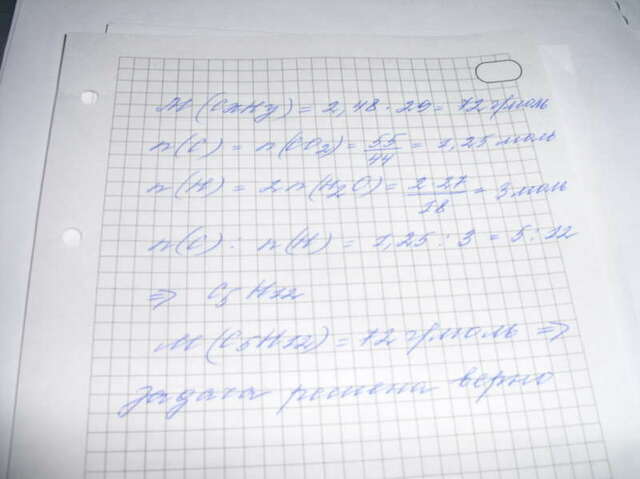 M(CxHy) = 2,48 · 29 = 72 г/моль
n(C) = n(CO₂) = 55/44 = 1,25 моль
n(H) = 2n(H₂O) = 2·27/18 = 3 моль
n(C) : n(H) = 1,25 : 3 = 5 : 12
=> C₅H₁₂
M(C₅H₁₂) = 72 г/моль =>
задача решена верно